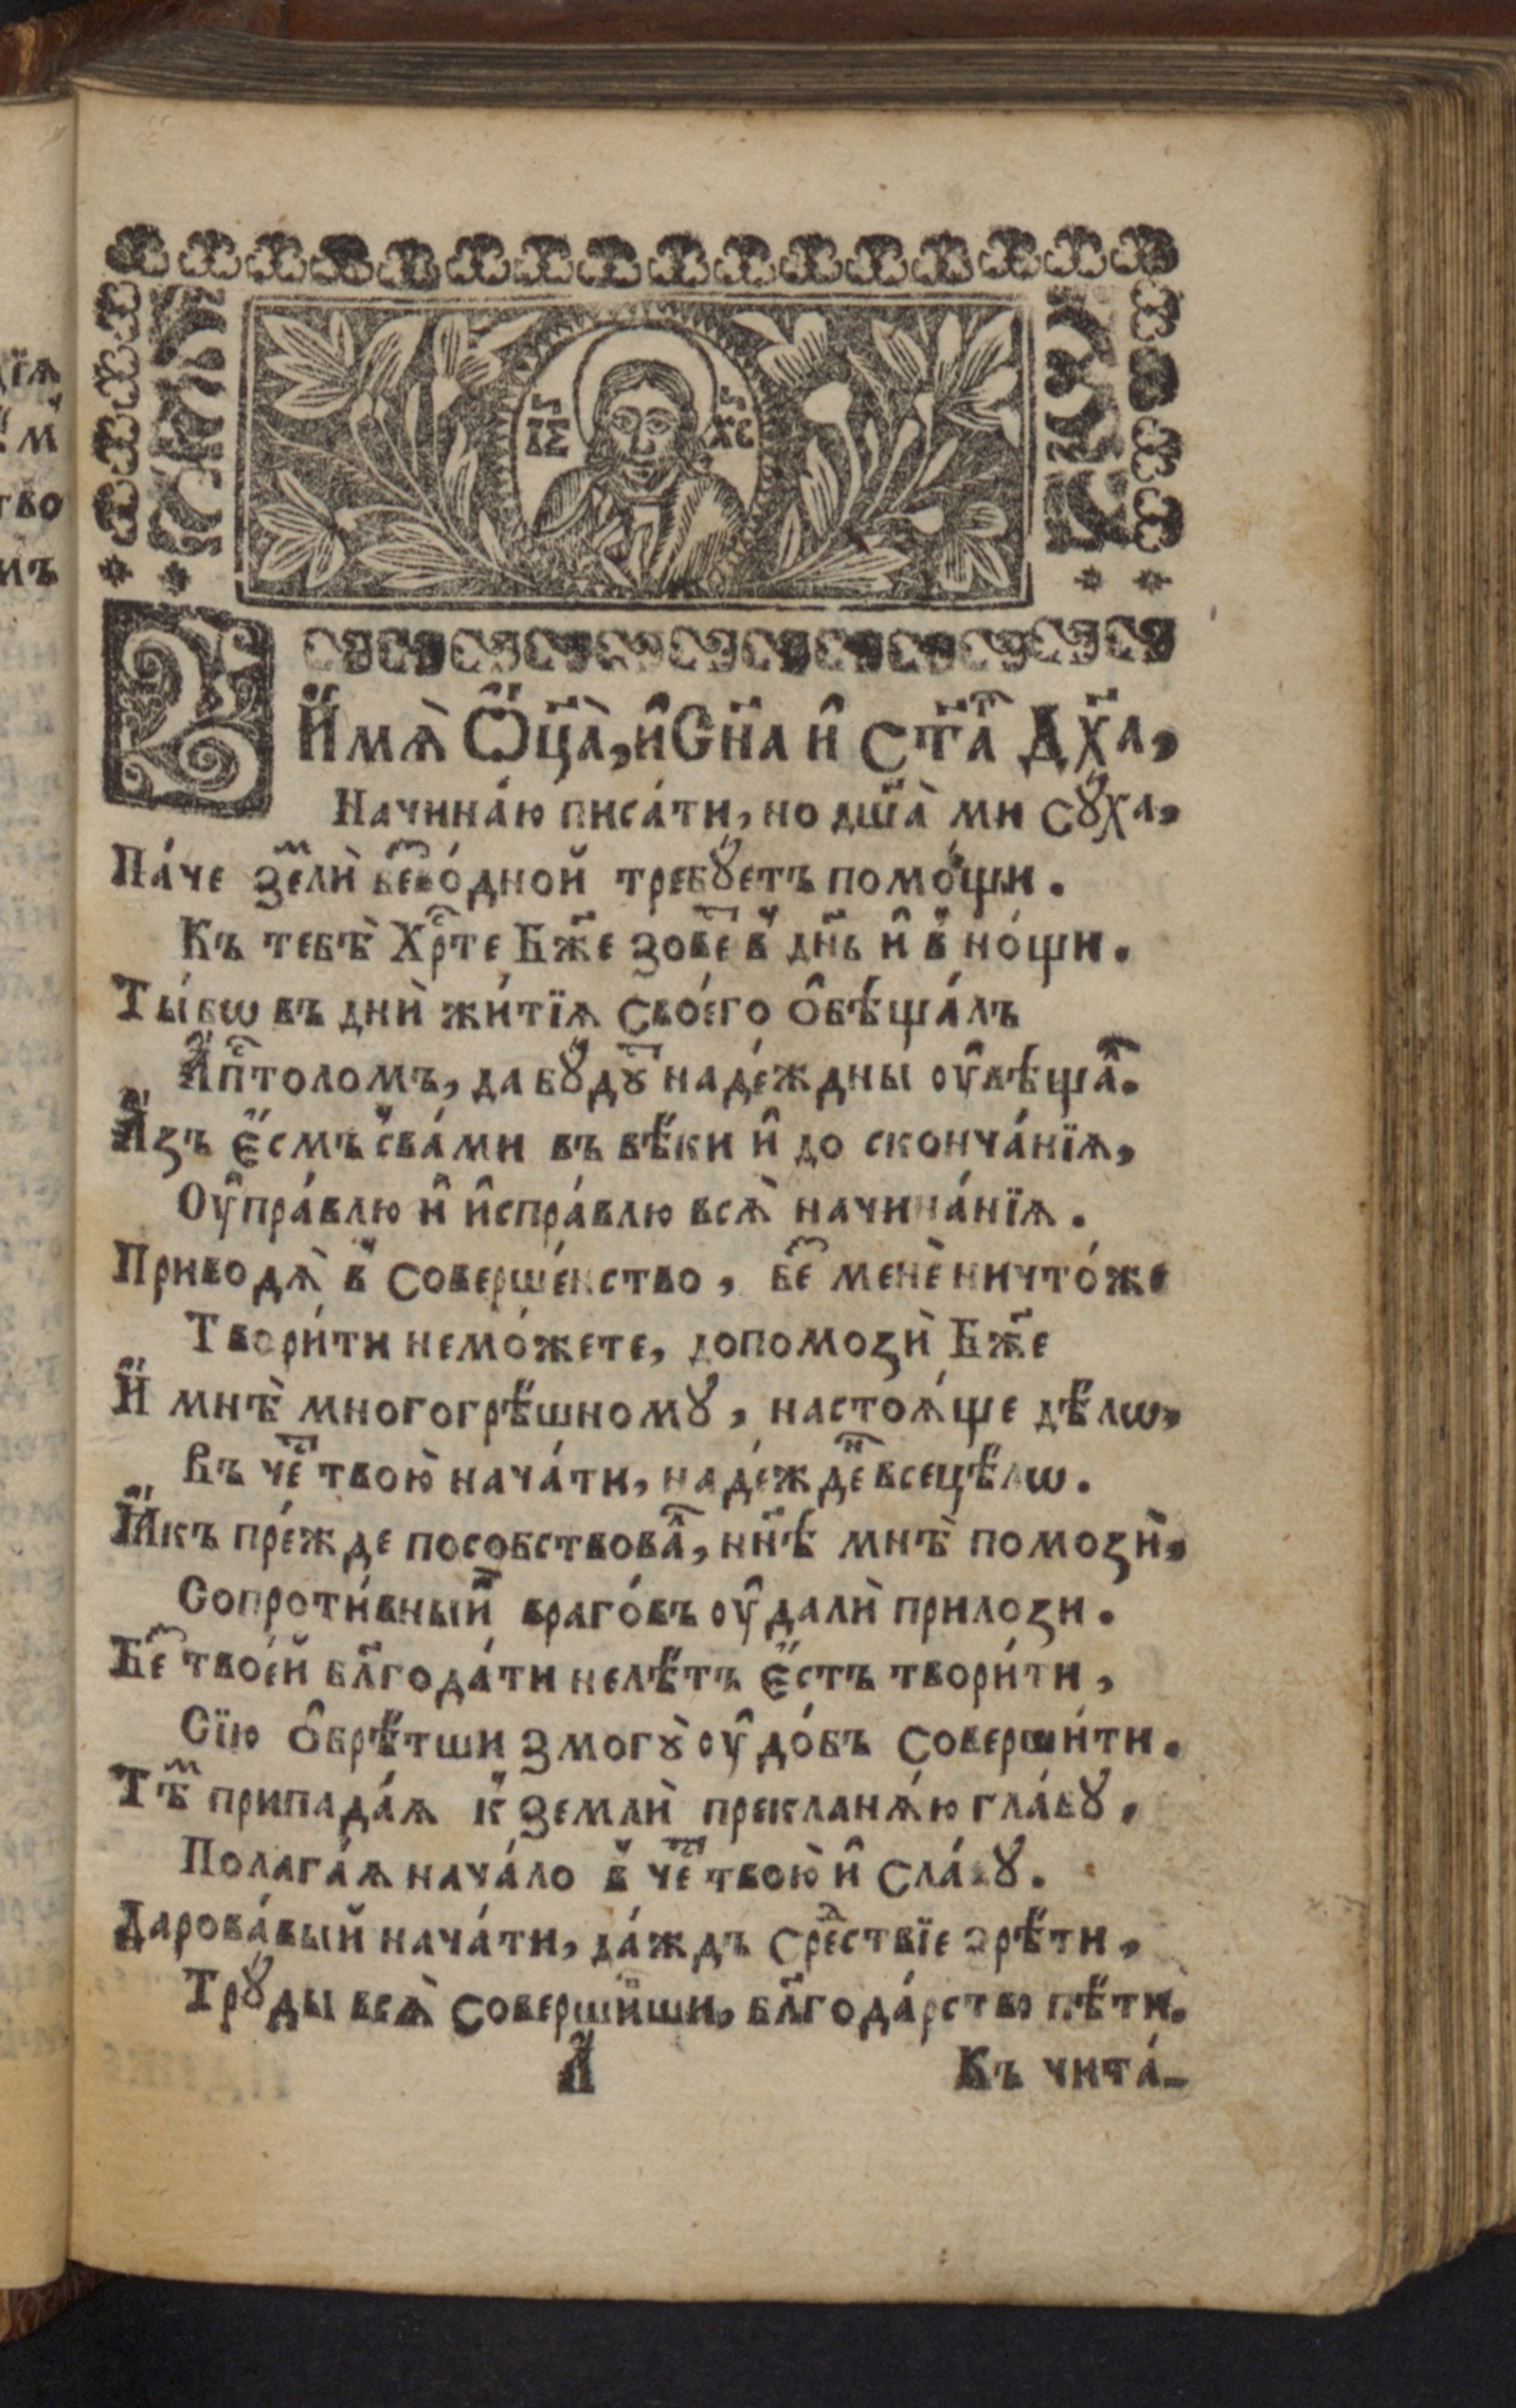 І҃С Х҃С
В И҆́мѧ̀ Ѻ҆ц҃а̀, и҆ Сн҃а и҆ Ст҃а̑ Дх҃а,
Начина́ю писа́ти, но дш҃а̀ ми сꙋ́ха,
Па́че зе̑лѝ бе̑во́дной требꙋ́етъ помо́щи.
Къ тебѣ̀ Хрⷭ҇те Бж҃е зове̑ в̾ дн҃ь и҆ в̾ но́щи.
Ты́бѡ въ днѝ жи́тїѧ своегѡ̀ ѻ҆бѣща́лъ
А҆пⷭ҇толомъ, да бꙋ́дꙋⷮ наде́ждны оу҆вѣща̑.
А҆́зъ є҆́смъ с̾ва́ми въ вѣ́ки и҆ до сконча́нїѧ,
Оу҆пра́влю и҆ и҆спра́влю всѧ̀ начина́нїѧ.
Приводѧ̀ в̾ соверше́нство, бе̑ менѐ ничто́же
Твори́ти немо́жете, допомозѝ Бж҃е
И҆́ мнѣ̀ многогрѣ́шномꙋ, настоѧ́ще дѣ́лѡ,
Въ чеⷭ҇ твою̀ нача́ти, наде́ждеⷩ всецѣ́лѡ.
Ꙗ҆́къ пре́жде пособствова̑, нн҃ѣ мнѣ̀ помозѝ,
Сопроти́вныиⷯ враго́въ оу҆далѝ прилозѝ.
Беⷥ твое́й бл҃года́ти нелѣ́тъ є҆́стъ твори́ти,
Сїю ѻ҆брѣ́тши змогꙋ̀ оу҆до́бъ соверши́ти.
Тѣⷨ припада́ѧ к̾ землѝ прекланѧ́ю гла́вꙋ,
Полага́ѧ нача́ло в̾ чеⷭ҇ твою̀ и҆ сла́вꙋ.
Дарова́вый нача́ти, да́ждъ среⷣствїе зрѣ́ти,
Трꙋ́ды всѧ̀ соверши́вши, бл҃года́рство пѣ́ти.
А҃ Къ чита́-
їѧ
м
тво
нъ